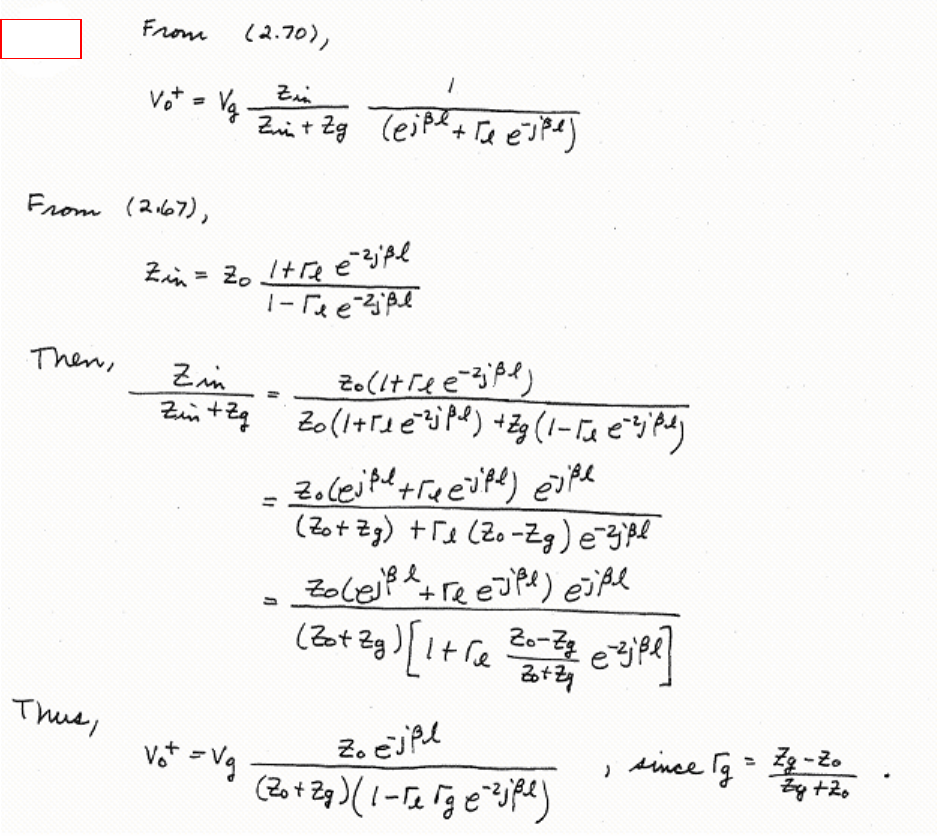 From (2.70),
V₀⁺ = Vg Zin/(Zin + Zg) 1/(e^{jβℓ} + Γℓ e^{-jβℓ})
From (2.67),
Zin = Z₀ (1 + Γℓ e^{-2jβℓ})/(1 - Γℓ e^{-2jβℓ})
Then,
Zin/(Zin + Zg) = Z₀(1 + Γℓ e^{-2jβℓ})/(Z₀(1 + Γℓ e^{-2jβℓ}) + Zg(1 - Γℓ e^{-2jβℓ}))
= Z₀(e^{jβℓ} + Γℓ e^{-jβℓ}) e^{-jβℓ}/((Z₀ + Zg) + Γℓ (Z₀ - Zg) e^{-2jβℓ})
= Z₀(e^{jβℓ} + Γℓ e^{-jβℓ}) e^{-jβℓ}/((Z₀ + Zg)[1 + Γℓ (Z₀ - Zg)/(Z₀ + Zg) e^{-2jβℓ}])
Thus,
V₀⁺ = Vg Z₀ e^{-jβℓ}/((Z₀ + Zg)(1 - Γℓ Γg e^{-2jβℓ})) , since Γg = (Zg - Z₀)/(Zg + Z₀) .